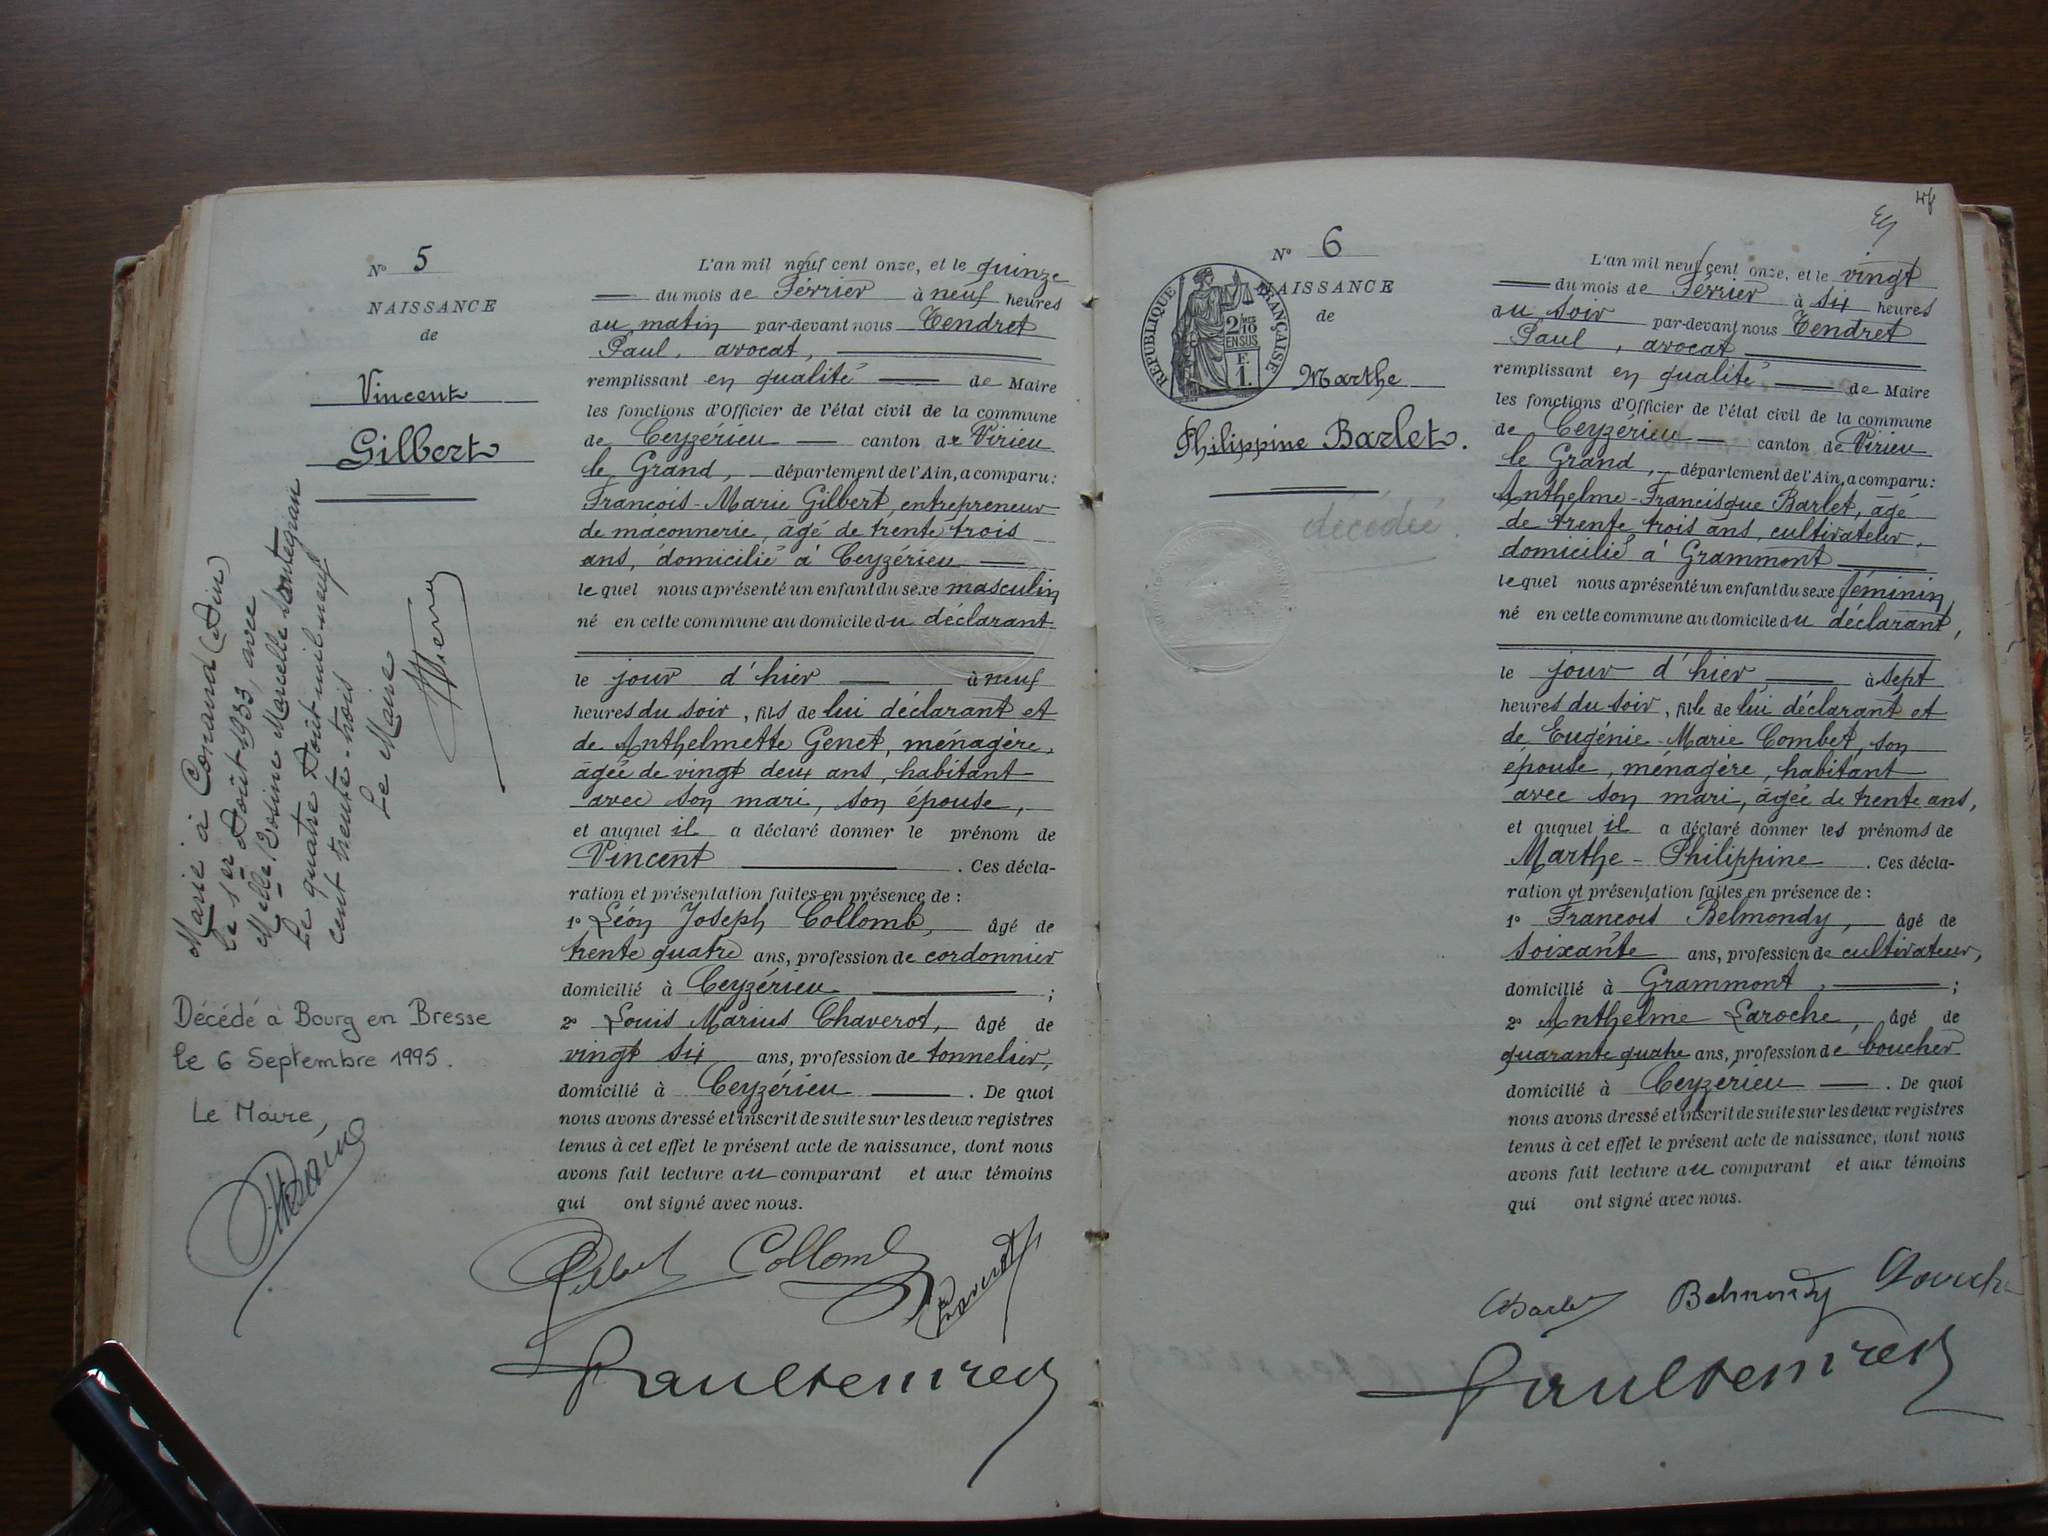 N° 5
NAISSANCE
de
Vincent
Gilbert
Marié à Conand (Ain)
le 1er Août 1933, avec
Melle Marcelle
Le quatre Août mil neuf
cent trente-trois
Le Maire
Décédé à Bourg en Bresse
le 6 Septembre 1995.
Le Maire,
L'an mil neuf cent onze, et le quinze
du mois de Février à neuf heures
du matin par-devant nous Tendret
Paul, avocat,
remplissant en qualité de Maire
les fonctions d'Officier de l'état civil de la commune
de Ceyzérieu canton de Virieu
le Grand, département de l'Ain, a comparu:
François-Marie Gilbert, entrepreneur
de maçonnerie, âgé de trente trois
ans, domicilié à Ceyzérieu
lequel nous a présenté un enfant du sexe masculin
né en cette commune au domicile du déclarant
le jour d'hier à neuf
heures du soir, fils de lui déclarant et
de Anthelmette Genet, ménagère,
âgée de vingt deux ans, habitant
avec son mari, son épouse,
et auquel il a déclaré donner le prénom de
Vincent. Ces décla-
ration et présentation faites en présence de :
1° Léon Joseph Collomb, âgé de
trente quatre ans, profession de cordonnier
domicilié à Ceyzérieu ;
2° Louis Marius Chaverot, âgé de
vingt six ans, profession de tonnelier,
domicilié à Ceyzérieu. De quoi
nous avons dressé et inscrit de suite sur les deux registres
tenus à cet effet le présent acte de naissance, dont nous
avons fait lecture au comparant et aux témoins
qui ont signé avec nous.
Gilbert Collomb Chaverot
Paul Tendret
N° 6
NAISSANCE
de
RÉPUBLIQUE FRANÇAISE
2/10
EN SUS
F.
1.
Marthe
Philippine Barlet.
décédée.
L'an mil neuf cent onze, et le vingt
du mois de Février à six heures
du soir par-devant nous Tendret
Paul, avocat
remplissant en qualité de Maire
les fonctions d'Officier de l'état civil de la commune
de Ceyzérieu canton de Virieu
le Grand, département de l'Ain, a comparu:
Anthelme-Francisque Barlet, âgé
de trente trois ans, cultivateur,
domicilié à Grammont
lequel nous a présenté un enfant du sexe féminin
né en cette commune au domicile du déclarant,
le jour d'hier à sept
heures du soir, fille de lui déclarant et
de Eugénie-Marie Combet, son
épouse, ménagère, habitant
avec son mari, âgée de trente ans,
et auquel il a déclaré donner les prénoms de
Marthe-Philippine. Ces décla-
ration et présentation faites en présence de :
1° François Belmondy, âgé de
soixante ans, profession de cultivateur,
domicilié à Grammont, ;
2° Anthelme Laroche, âgé de
quarante quatre ans, profession de boucher
domicilié à Ceyzérieu. De quoi
nous avons dressé et inscrit de suite sur les deux registres
tenus à cet effet le présent acte de naissance, dont nous
avons fait lecture au comparant et aux témoins
qui ont signé avec nous.
Barlet Belmondy Laroche
Paul Tendret